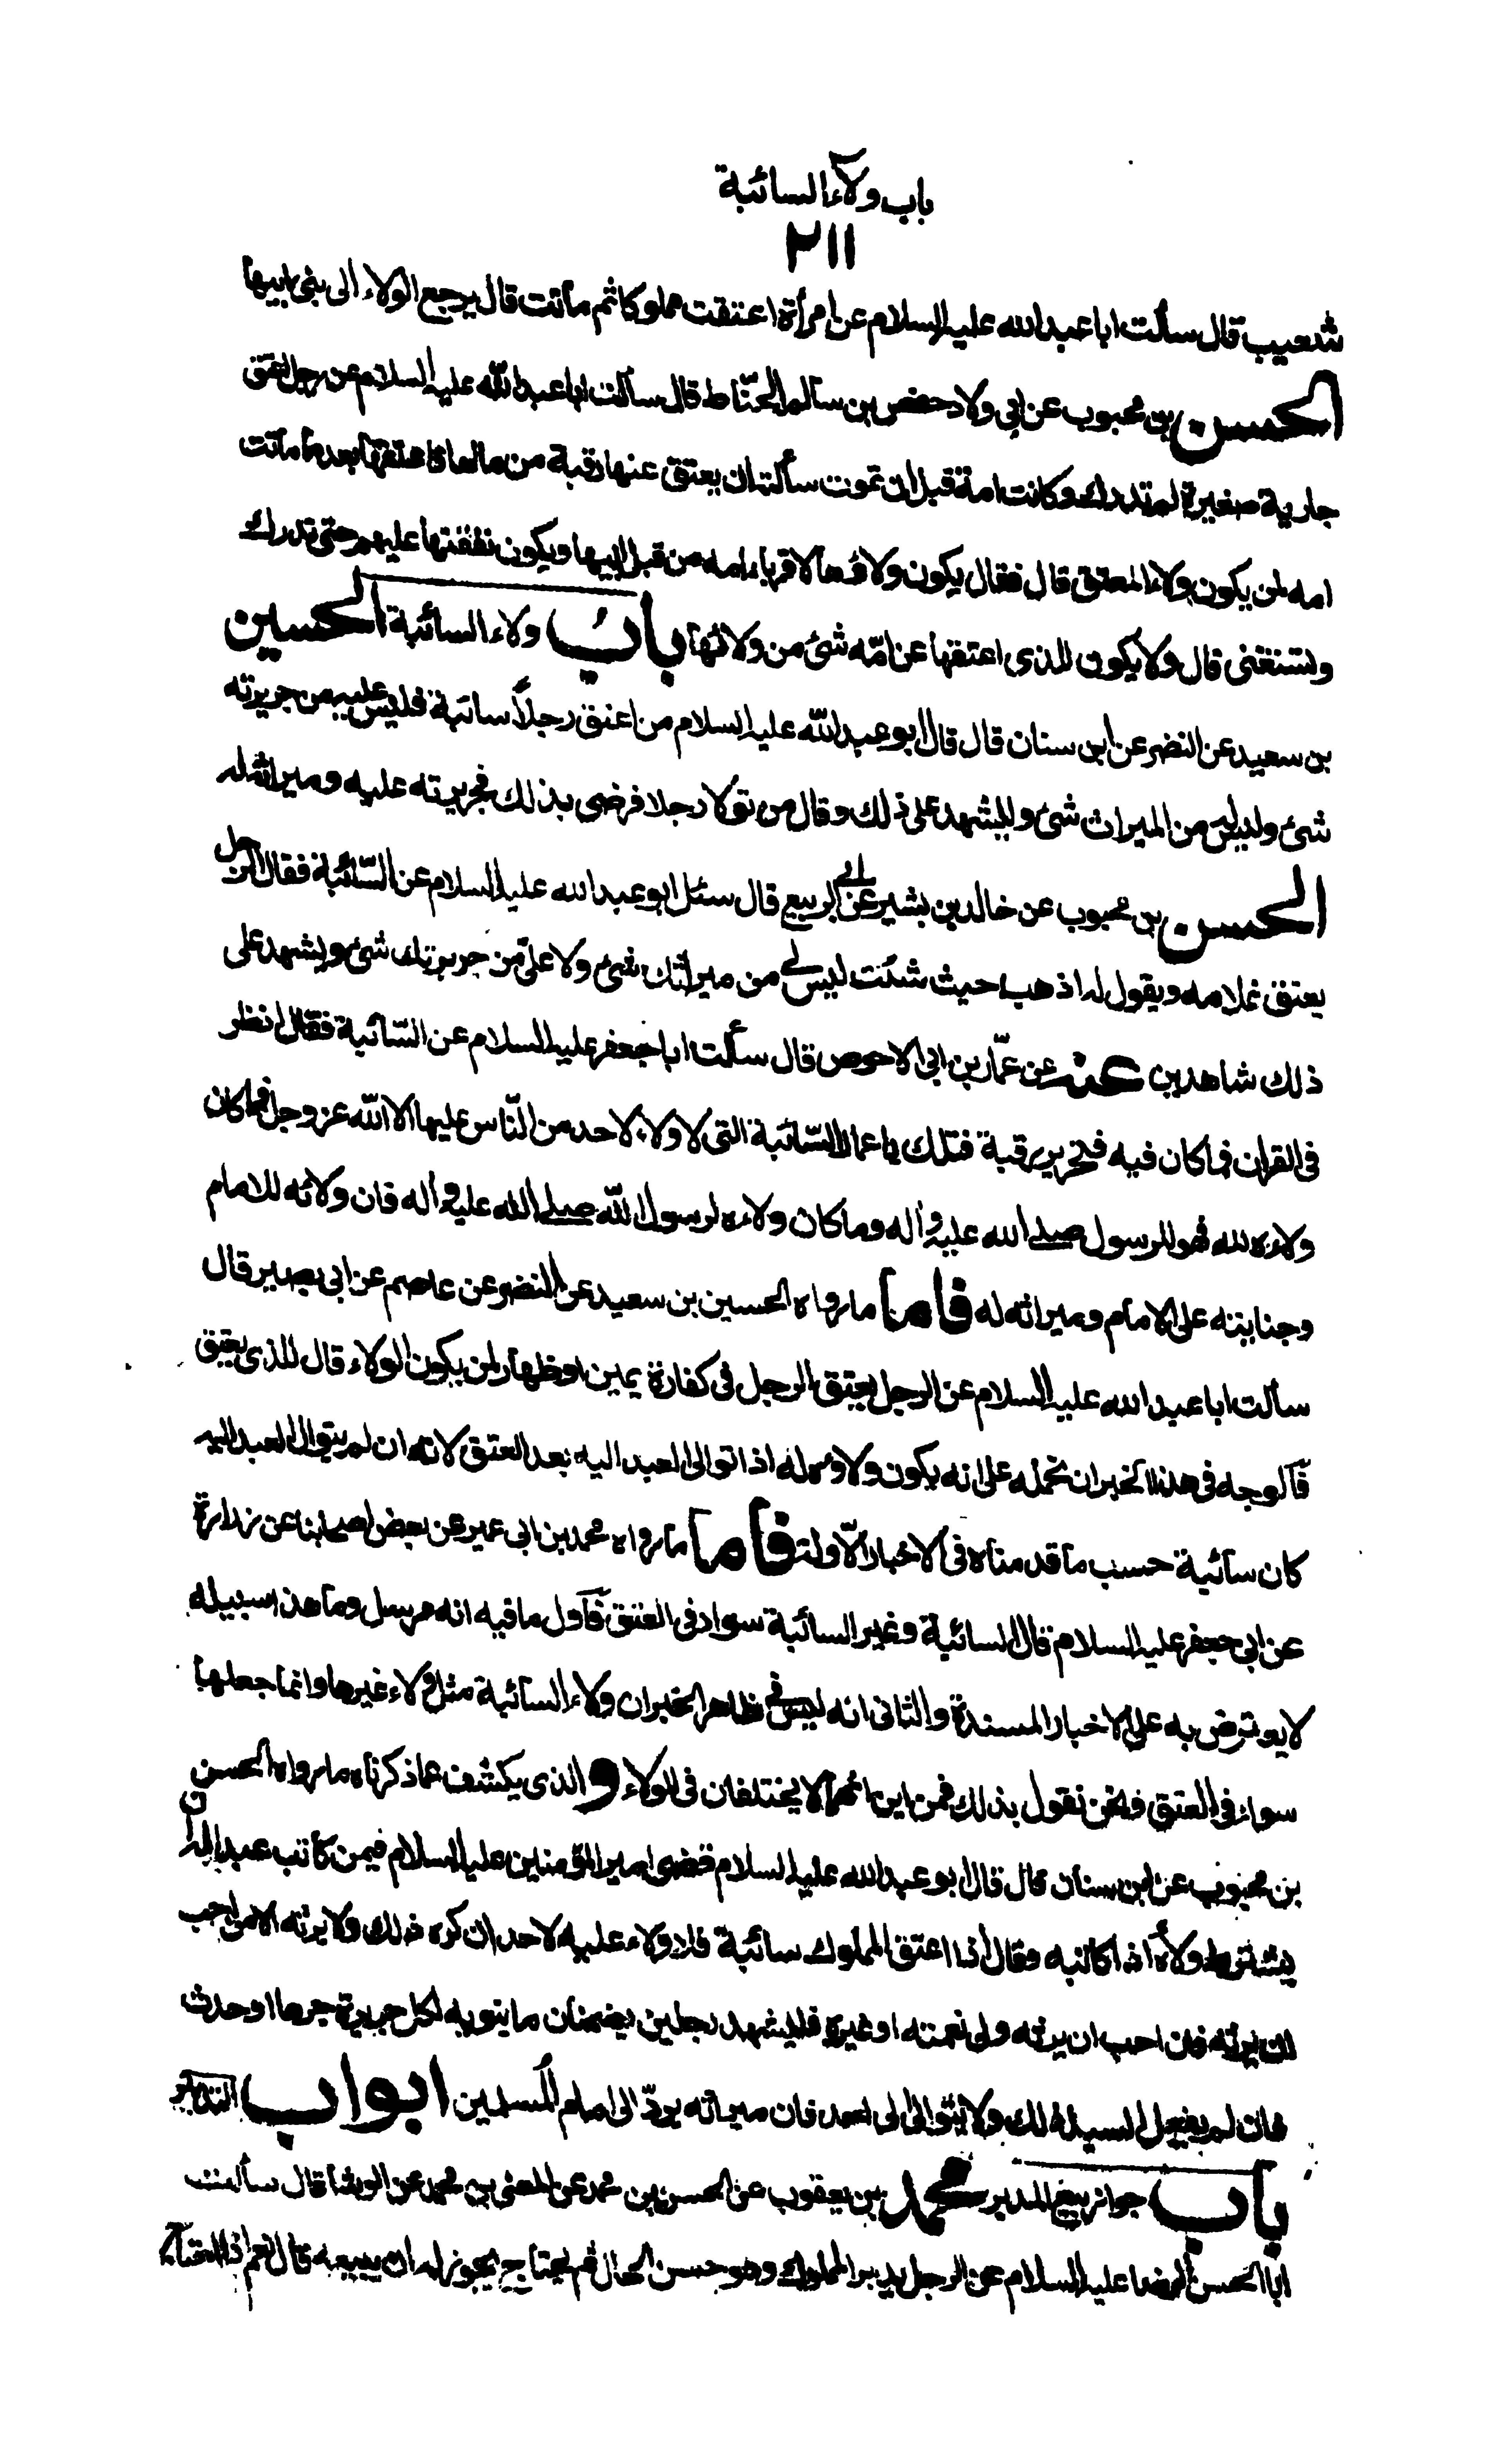 باب ولاء السائبة
٢١١
شعيب قال سألت ابا عبد الله عليه السلام عن امرأة اعتقت مملوكا ثم ماتت قال يرجع الولاء الى بنى ابيها
الحسن بن محبوب عن ابي ولاد حفص بن سالم الحنّاط قال سألت ابا عبد الله عليه السلام عن رجل اعتق
جارية صغيرة لم تدرك وكانت امه قبل ان تموت سألته ان يعتق عنها رقبة من مالها فاعتقها بعد ما ماتت
امه لمن يكون ولاء المعتق قال فقال يكون ولاؤها لاقرباء امه من قبل ابيها ويكون نفقتها عليهم حتى تدرك
وتستغنى قال ولا يكون للذى اعتقها عن امّه شئ من ولائها باب ولاء السائبة الحسين
بن سعيد عن النضر عن ابن سنان قال قال ابو عبد الله عليه السلام من اعتق رجلاً سائبة فليس عليه من جريرته
شئ وليس له من الميراث شئ وليشهد على ذلك وقال من تولا رجلا فرضى بذلك فجريرته عليه وميراثه له
الحسن بن محبوب عن خالد بن بشير عن ابى الربيع قال سئل ابو عبد الله عليه السلام عن السّائبة فقال الرجل
يعتق غلامه ويقول له اذهب حيث شئت ليس لى من ميراثك شئ ولا علىّ من جريرتك شئ ويشهد على
ذلك شاهدين عنه عن عمّار بن ابى الاحوص قال سألت ابا جعفر عليه السلام عن السّائبة فقال انظر
فى القران فما كان فيه فتحرير رقبة فتلك يا عمار السّائبة التى لا ولاء لاحد من النّاس عليها الا الله عز وجل فما كان
ولاءه لله فهو للرسول صلى الله عليه واله وما كان ولاءه لرسول اللّه صلى الله عليه واله فان ولائه للامام
وجنايته على الامام وميراثه له فاما ما رواه الحسين بن سعيد عن النضر عن عاصم عن ابى بصير قال
سألت ابا عبد الله عليه السلام عن الرجل يعتق الرجل فى كفارة يمين او ظهار لمن يكون الولاء قال للذى يعتق
فالوجه فى هذا الخبر ان نحمله على انه يكون ولاؤه له اذا توالى العبد اليه بعد العتق لانه ان لم يتوال العبد اليه
كان سائبة حسب ما قدمناه فى الاخبار الاولة فاما ما رواه محمد بن ابى عمير عن بعض اصحابنا عن زرارة
عن ابى جعفر عليه السلام قال السائبة وغير السائبة سواء فى العتق فاول ما فيه انه مرسل وما هذا سبيله
لا يعترض به على الاخبار المسندة والثانى انه ليس فى ظاهر الخبر ان ولاء السائبة مثل ولاء غيرها وانما جعلها
سواء فى العتق فنحن نقول بذلك فمن اين انهما لا يختلفان فى الولاء والذى يكشف عما ذكرناه ما رواه الحسن
بن محبوب عن ابن سنان قال قال ابو عبد الله عليه السلام قضى امير المؤمنين عليه السلام فيمن كاتب عبدا له ان
يشترط ولاه اذا كاتبه وقال اذا اعتق المملوك سائبة فلا ولاء عليه لاحد ان كره ذلك ولا يرثه الا من احب
ان يرثه فان احب ان يرثه ولى نعمته او غيره فليشهد رجلين يضمنان ما ينوبه لكل جريرة جرها او حدث
فان لم يفعل السيد ذلك ولا يتوالى الى احد فان ميراثه يردّ الى امام المسلمين ابواب التدبير
باب جواز بيع المدبر محمد بن يعقوب عن الحسن بن محمد عن المعلى بن محمد عن الوشا قال سألت
ابا الحسن الرضا عليه السلام عن الرجل يدبر المملوك وهو حسن الحال ثم يحتاج يجوز له ان يبيعه قال نعم اذا احتاج